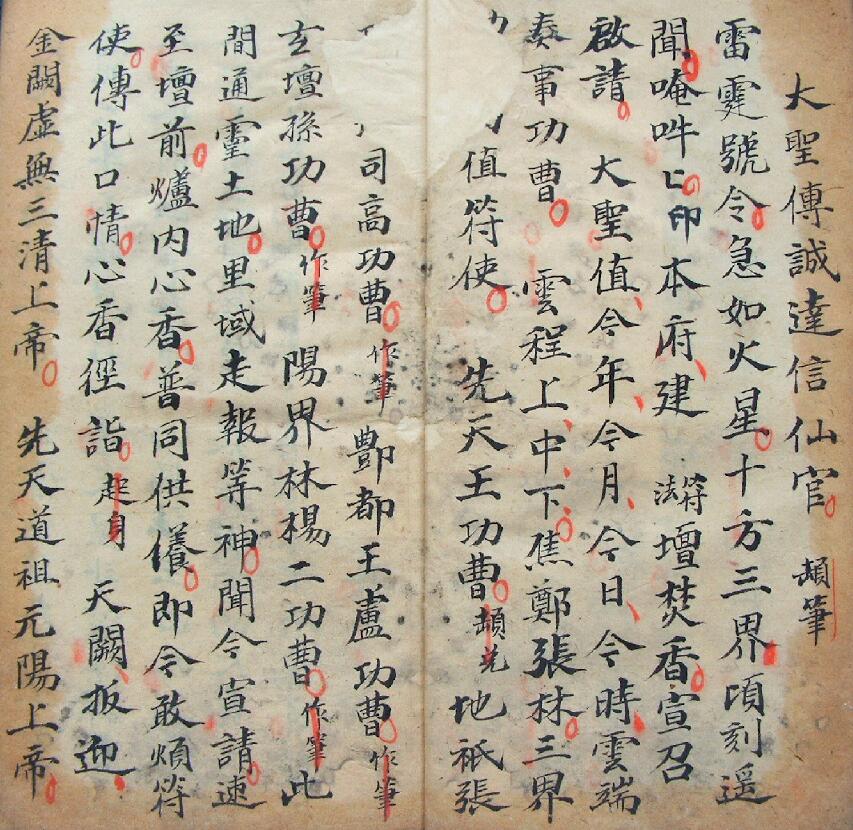 大聖傳誠達信仙官 頓筆
雷霆號令急如火星十方三界頃刻遥
聞唵吽 印本府建 符法壇焚香宣召
啟請 大聖值今年今月今日今時雲端
奏事功曹 雲程上中下焦鄭張林三界
值符使 先天王功曹 地祇張
司高功曹作筆 酆都王盧功曹作筆
玄壇孫功曹作筆 陽界林楊二功曹作筆 此
間通靈土地里域走報等神聞今宣請速
至壇前爐内心香普同供養即今敢煩符
使傳此口情心香徑詣起身 天闕扳迎
金闕虛無三清上帝 先天道祖元陽上帝